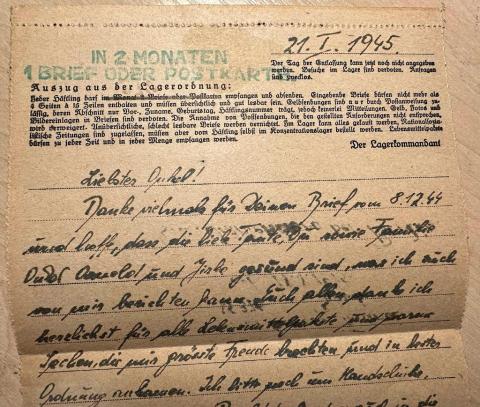 IN 2 MONATEN
1 BRIEF ODER POSTKARTE
21. I. 1945.
Der Tag der Entlassung kann jetzt noch nicht angegeben
werden. Besuche im Lager sind verboten. Anfragen
sind zwecklos.
Auszug aus der Lagerordnung:
Jeder Häftling darf im Monat 2 Briefe oder Postkarten empfangen und absenden. Eingehende Briefe dürfen nicht mehr als
4 Seiten à 15 Zeilen enthalten und müssen übersichtlich und gut lesbar sein. Geldsendungen sind nur durch Postanweisung zu-
lässig, deren Abschnitt nur Vor-, Zuname, Geburtstag, Häftlingsnummer trägt, jedoch keinerlei Mitteilungen. Geld, Fotos und
Bildereinlagen in Briefen sind verboten. Die Annahme von Postsendungen, die den gestellten Anforderungen nicht entsprechen,
wird verweigert. Unübersichtliche, schlecht lesbare Briefe werden vernichtet. Im Lager kann alles gekauft werden. Nationalsozia-
listische Zeitungen sind zugelassen, müssen aber vom Häftling selbst im Konzentrationslager bestellt werden. Lebensmittelpakete
dürfen zu jeder Zeit und in jeder Menge empfangen werden.
Der Lagerkommandant
Liebster Onkel!
Danke vielmals für Deinen Brief vom 8.12.44
und hoffe, dass die liebe gute Familie
Onkel Arnold und gesund sind, was ich auch
von mir berichten kann. Euch allen danke ich
herzlichst für alle Lebensmittelpakete und warme
Sachen, die mir grösste Freude brachten und in bester
Ordnung ankamen. Ich bitte noch um Handschuhe,